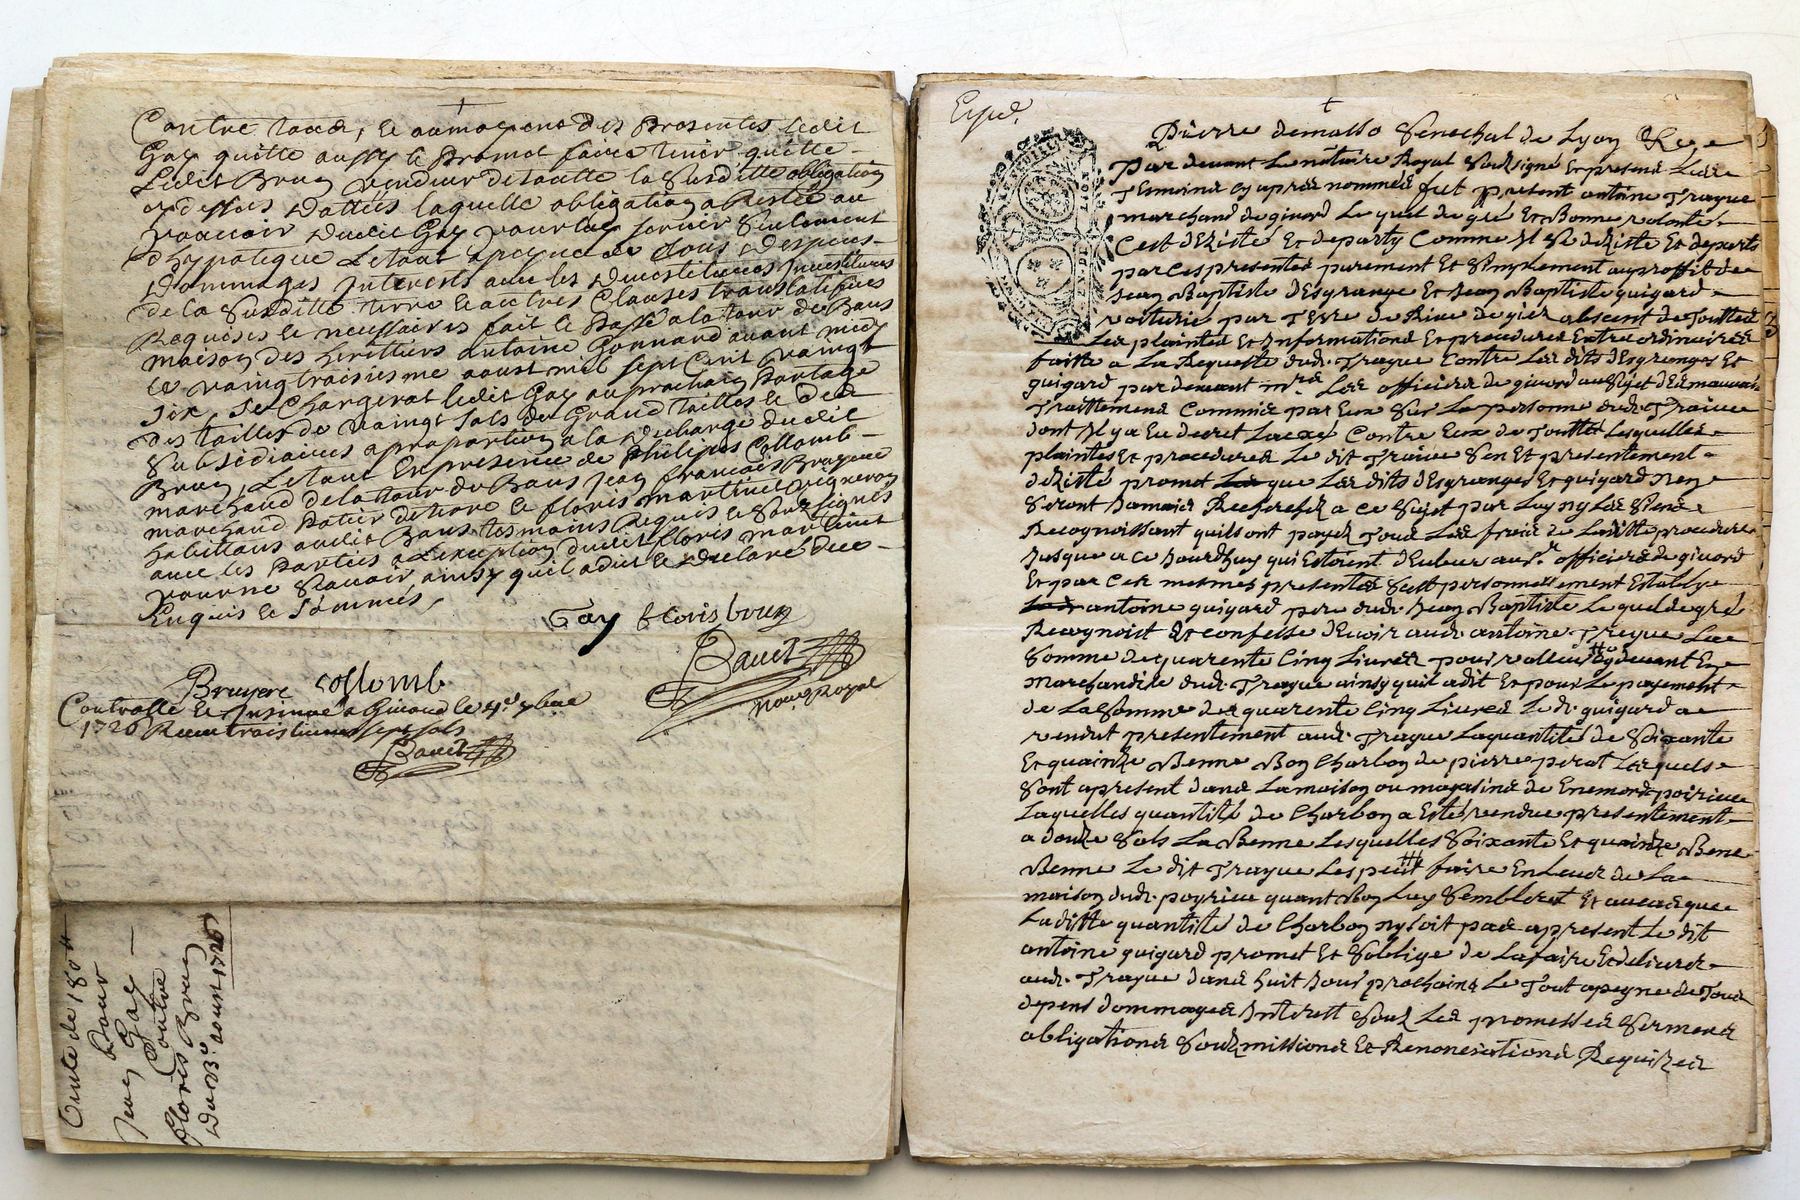 Contre tous, et au moyens des presentes ledit
Gay quitte aussy et promet faire tenir quitte
Ledit Brun vendeur de toutte la Susditte obligation
cy dessus dattées laquelle obligation a Restée au
pouvoir dudit Gay pour luy servir Seulement
d'hypoteque Letout a peyne de tous despens
Dommages Interests avec les devestitures Investitures
de la Susditte terre et autres Clauses translatifves
Requises et necessaires fait et passé a la tour de Bans
maison des heritiers antoine Gonnard avant midy
le vaingtroisiesme aoust mil sept Cent vaingt
Six, Se Chargerat ledit Gay au prochain partage
des tailles de vaingt Sols de Grand tailles et des
Subsidiaires a proportion a la decharge dudit
Brun, Letout En presence de philipes Collomb
marchand de la tour de Bans Jean francois Bruyere
marchand potier de terre et floris martinet vigneron
habittans audit Bans tesmoins Requis et Soussignés
avec les parties a L'exception dudit floris martinet
pour ne Scavoir, ainsy quil a dit et declaré de ce
Enquis et Sommés,
Gay floris brun
Bruyere collomb
Bavet
not. Royal
Controllé et Insinué a Givord le 4e 7bre
1726 Receu trois livres sept sols
Bavet
Vente de 180 ₶
pour
Jean Gay
Contre
floris Brun
Du 23e aoust 1726
Exped.
Pierre demasso Senechal de Lyon
par devant Le notaire Royal Soubsigné Et presend Les
Tesmoins cy aprés nommés fut present antoine Trayue
marchand de givord Le quel de gré Et Bonne volonté
C'est dEzisté Et departy Comme Il Se deziste Et departs
par ces presentes purement Et Simplement au proffit de
Jean Baptiste dEsgrange Et Jean Baptiste guigard
voiturie par Terre de Rive de gier absent de Touttes
Les plaintes Et Informations Et procedures Extreordinaires
faitte a La Requeste dud. Trayue Contre Les dits dEsgranges Et
guigard par devant mrs Les officiers de givord au Sujet des mauvais
Traittemens Commis par Eux Sur La personne dud. Traiue
dont Il y a Eu decret Laxé Contre Eux de Touttes Lesquelles
plaintes Et procedures Le dit Traiue Sen Et presentement
deziste promet que Les dits dEsgranges Et guigard nen
Seront Jamais Recherches a ce Sujet par Luy ny Les Siens
Recognoissant quils ont payés Tous Les frais de Laditte procedure
Jusque a ce Jourdhuy qui Estoient deubeur aux srs officiers de givord
Et par ces mesmes presentes Sest personnellement Establye
antoine guigard pere dud. Jean Baptiste Le quel de gré
Recognoist Et confesse devoir aud. antoine Treyue La
Somme de quarente Cinq Livres pour valleur Cy devant En
marchandise dud. Trayue ainsy quil a dit Et pour Le payement
de La Somme de quarente Cinq Livres Le d. guigard a
vendut presentement aud. Trayue La quantité de Soixante
Et quainze Benne Bon Charbon de pierre perat Lesquels
Sont apresent dans La maison ou magasins de Enemond poirieu
Laquelles quantité de Charbon a Esté vendue presentement
a douze Sols La Benne Lesquelles Soixante Et quainze Bene
Benne Le dit Trayue Les peut faire Enlever de La
maison dud. poyrieu quant Bon Luy Semblerat Et au cas que
La ditte quantité de Charbon ny soit pas apresent Le dit
antoine guigard promet Et Soblige de La faire Et delivrer
aud. Trayue dans huit Jours prochains Le Tout a peyne de Tous
depens dommages Interest Souz Les promesses Sermens
obligations Souzmissions Et Renonciations Requizes